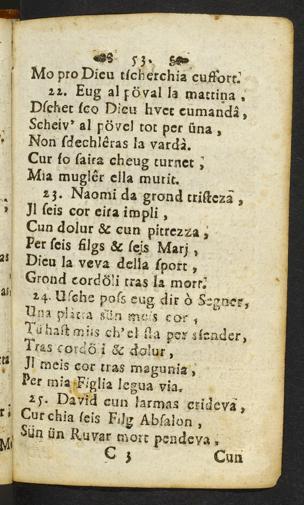 53.
Mo pro Dieu tscherchia cuffort.
22. Eug al ſöval la mattina,
Dſchet ſco Dieu hvet cumandâ,
Scheiv' al ſövel tot per üna,
Non ſdechlêras la vardà.
Cur ſo ſaira cheug turnet,
Mia muglêr ella murit.
23. Naomi da grond triſteza,
Jl ſeis cor eira impli,
Cun dolur & cun pitrezza,
Per ſeis filgs & ſejs Marj,
Dieu la veva della ſport,
Grond cordöli tras la mort.
24. Uſche poſs eug dir ò Segner,
Una plàtta sün meis cor,
Tü haſt miis ch'el ſla per ſſender,
Tras cordö i & dolur,
Jl meis cor tras magunia,
Per mia Figlia legua via.
25. David cun larmas crideva,
Cur chia ſeis Filg Abſalon,
Sün ün Ruvar mort pendeva,
C 3 Cun